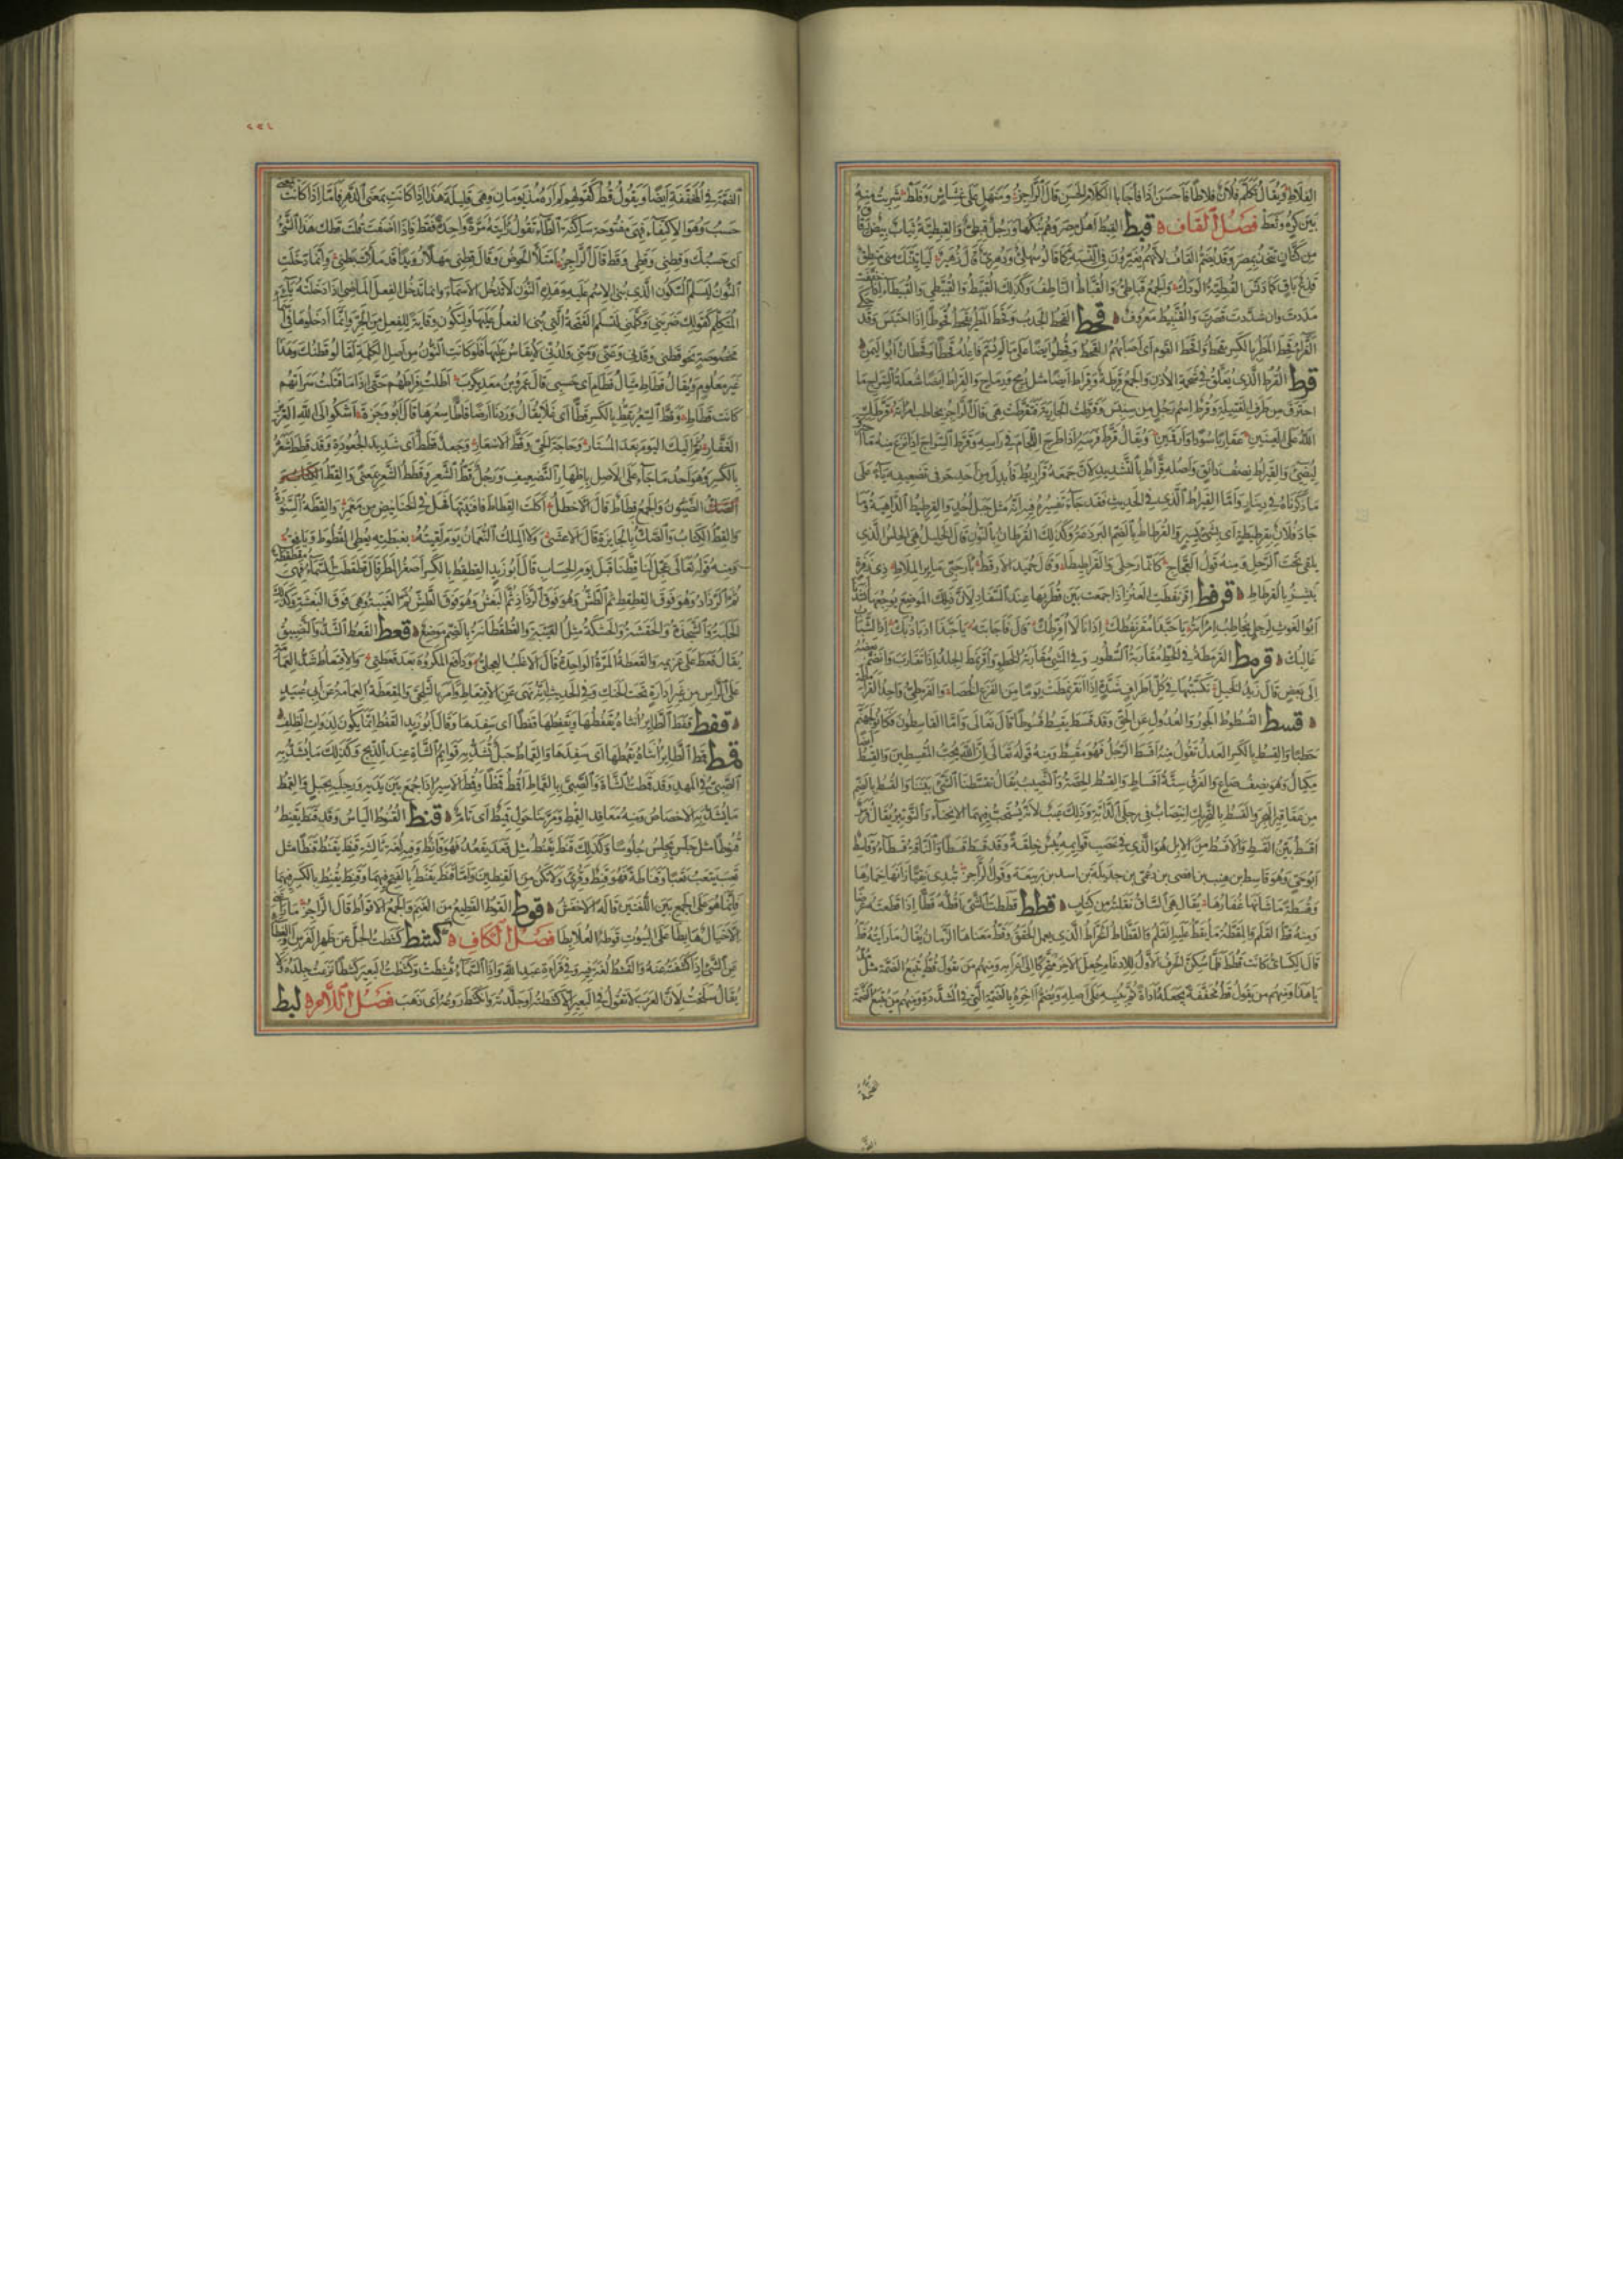 الفلاط ويقال تكلم فلان فلاطا فاحسن اذا فاجا بالكلام الحسن قال الراجز ومنهل على غشاش وفلط شربت منه
بين كره ونعط فصل القاف قبط القبط اهل مصر وهم بنكها ورجل قبطي والقبطية ثياب بيض رقاق
من كتان تتخذ بمصر وقد يضم القاف لانهم يغيرون في النسبة كما قالوا سهلي ودهري قال زهير ليأتينك مني منطق
قذع باق كما دنس القبطية الودك والجمع قباطي والقباط الناطف وكذلك القبيط والقبيطى والقبيطاء اذا خففت
مددت وان شددت قصرت والقنبيط معروف قحط القحط الجدب وقحط المطر يقحط قحوطا اذا احتبس وقد حكى
الفراء قحط المطر بالكسر يقحط واقحط القوم اي اصابهم القحط وقحطوا ايضا على ما لم يسم فاعله قحطا وقحطان ابو اليمن
قرط القرط الذي يعلق في شحمة الاذن والجمع قرطة وقراط ايضا مثل رمح ورماح والقراط ايضا شعلة السراج ما
احترق من طرف الفتيلة وقرط اسم رجل من سنبس وقرطت الجارية فتقرطت هي قال الراجز يخاطب امرأته قرطك
الله على العينين عقاربا سودا وارقمين ويقال قرط فرسه اذا طرح اللجام في راسه وقرط السراج اذا نزع منه ما احترق
ليضيء والقيراط نصف دانق واصله قراط بالتشديد لان جمعه قراريط فابدل من احد حرفي تضعيفه ياء على
ما ذكرناه في دينار واما القيراط الذي في الحديث فقد جاء تفسيره فيه انه مثل جبل احد والقرطيط الداهية وما
جاد فلان بقرطيطة اي بشيء يسير والقرطاط بالضم البرذعة وكذلك القرطان بالنون قال الخليل هي الحلس الذي
يلقى تحت الرحل ومنه قول العجاج كانما رحلي والقراططا وقال حميد الارقط بارحبي مائر الملاط ذي زفرة
ينشر بالقرطاط قرفط اقرنفطت العنز اذا جمعت بين قطريها عند السفاد لان ذلك الموضع يوجعها
ابو الغوث لرجل يخاطب امرأته يا حبذا مقرنفطك اذ انا لا افرطك قال فاجابته يا حبذا ذباذبك اذ الشباب
غالبك قرمط القرمطة في الخط مقاربة السطور وفي المشي مقاربة الخطو واقرمط الجلد اذا تقارب وانضم بعضه
الى بعض قال زيد الخيل تكسبتها في كل اطراف شدة اذا اقرمطت يوما من الفزع الخصا والقرمطي واحد القرامطة
قسط القسوط الجور والعدول عن الحق وقد قسط يقسط قسوطا قال تعالى واما القاسطون فكانوا لجهنم
حطبا والقسط بالكسر العدل تقول منه اقسط الرجل فهو مقسط ومنه قوله تعالى ان الله يحب المقسطين والقسط ايضا
مكيال وهو نصف صاع والفرق ستة اقساط والقسط الحصة والنصيب يقال تقسطنا الشيء بيننا والقسط بالضم
من عقاقير البحر والقسط بالتحريك انتصاب في رجلي الدابة وذلك عيب لانه يستحب فيهما الانحناء والتوتير يقال فرس
اقسط بين القسط والاقسط من الابل هو الذي في عصب قوايمه يبس خلقة وقد قسط قسطا والناقة قسطاء وقاسط
ابو حي وهو قاسط بن هنب بن افصى بن دعمي بن جديلة بن اسد بن ربيعة وقول الراجز تبدي نقيا زانها خمارها
وقسطة ما شانها غفارها يقال هي الساق نقلته من كتاب قطط قططت الشيء اقطه قطا اذا قطعته عرضا
ومنه قط القلم والمقطة ما يقط عليه القلم والقطاط الخراط الذي يعمل الحقق وقط معناها الزمان يقال ما رايته قط
قال الكسائي كانت قطط فلما سكن الحرف الاول للادغام جعل الاخر متحركا الى اعرابه ومنهم من يقول قط يتبع الضمة الضمة مثل مد
يا هذا ومنهم من يقول قط مخففة يجعله اداة ثم يبنيه على اصله ويضم اخره بالضمة التي في المشددة ومنهم من يتبع الضمة
الضمة في المخففة ايضا ويقول قط كقولهم لم اره مذ يومان وهي قليلة هذا اذا كانت بمعنى الدهر فاما اذا كانت بمعنى
حسب وهو الاكتفاء فهي مفتوحة ساكنة الطاء تقول رايته مرة واحدة فقط فاذا اضفت قلت قطك هذا الشيء
اي حسبك وقطني وقطي وقط قال الراجز امتلأ الحوض وقال قطني مهلا رويدا قد ملأت بطني وانما دخلت
النون ليسلم السكون الذي بني الاسم عليه وهذه النون لا تدخل الاسماء وانما تدخل الفعل الماضي اذا دخلته ياء
المتكلم كقولك ضربني وكلمني لتسلم الفتحة التي بني الفعل عليها ولتكون وقاية للفعل من الجر وانما ادخلوها في اسماء
مخصوصة نحو قطني وقدني وعني ومني ولدني لا يقاس عليها فلو كانت النون من اصل الكلمة لقالوا قطنك وهذا
غير معلوم ويقال قطاط مثال قطام اي حسبي قال عمرو بن معديكرب اطلت فراطهم حتى اذا ما قتلت سراتهم
كانت قطاط وقط السعر يقط بالكسر قطا اي غلا يقال وردنا ارضا قاطا سعرها قال ابو وجزة اشكو الى الله العزيز
الغفار ثم اليك اليوم بعد المستار وحاجة الحي وقط الاسعار وجعد قطط اي شديد الجعودة وقد قطط شعره
بالكسر وهو احد ما جاء على الاصل باظهار التضعيف ورجل قط الشعر وقطط الشعر بمعنى والقط الكتاب و
الصك الضيون والجمع قطاط قال الاخطل اكلت القطاط فافنيتها فهل في الخنانيص من مغمز والقطة السنورة
والقط الكتاب والصك بالجايزة قال الاعشى ولا الملك النعمان يوم لقيته بغبطته يعطي القطوط ويافق
ومنه قوله تعالى عجل لنا قطنا قبل يوم الحساب قال ابو زيد القطقط بالكسر اصغر المطر يقال قطقطت السماء فهي مقطقطة
ثم الرذاذ وهو فوق القطقط ثم الطش وهو فوق الرذاذ ثم البغش وهو فوق الطش ثم الغبية وهي فوق البغشة وكذلك
الحلبة والشجذة والحفشة والحشكة مثل الغبية والقطقطانة بالضم موضع قعط القعط الشد والتضييق
يقال قعط على غريمه والقعطة المرة الواحدة قال الاغلب العجلي ودافع المكروه بعد قعطتي والاقتعاط شد العمامة
على الراس من غير ادارة تحت الحنك وفي الحديث انه نهى عن الاقتعاط وامر بالتلحي والمقعطة العمامة عن ابي عبيد
قفط قفط الطاير انثاه يقفطها ويقفطها قفطا اي سفدها وقال ابو زيد القفط انما يكون لذوات الظلف
قمط قمط الطاير انثاه يقمطها اي سفدها والقماط حبل تشد به قوايم الشاة عند الذبح وكذلك ما يشد به
الصبي في المهد وقد قمطت الشاة والصبي بالقماط اقمط قمطا وقمط الاسير اذا جمع بين يديه ورجليه بحبل والقمط
ما يشد به الاخصاص ومنه معاقد القمط ومر بنا حول قميط اي تام قنط القنوط الياس وقد قنط يقنط
قنوطا مثل جلس يجلس جلوسا وكذلك قنط يقنط مثل قعد يقعد فهو قانط وفيه لغة ثالثة قنط يقنط قنطا مثل
تعب يتعب تعبا وقناطة فهو قنط وقرئ ولا تكن من القنطين واما قنط يقنط بالفتح فيهما وقنط يقنط بالكسر فيهما
فانما هو على الجمع بين اللغتين قاله الاخفش قوط القوط القطيع من الغنم والجمع الاقواط قال الراجز ما راعني
الا خيال هابطا على البيوت قوطه العلابطا فصل الكاف كشط كشطت الجل عن ظهر الفرس والغطاء
عن الشيء اذا كشفته عنه والقشط لغة فيه وفي قراءة عبد الله واذا السماء قشطت وكشطت البعير كشطا نزعت جلده ولا
يقال سلخت لان العرب لا تقول في البعير الا كشطته او جلدته وانكشط روعه اي ذهب فصل اللام لبط